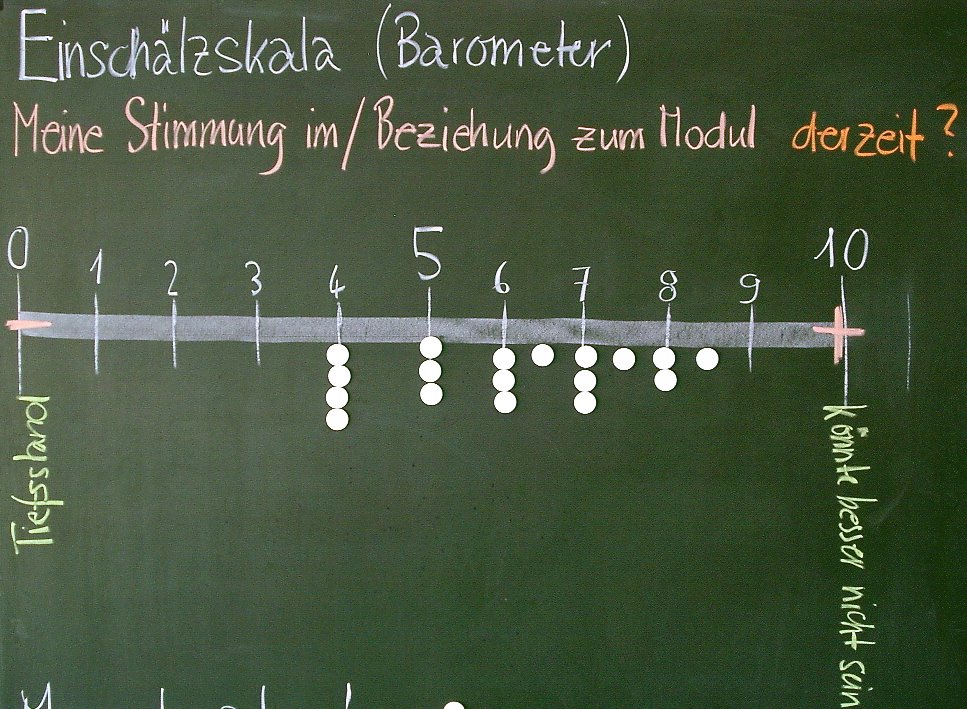 Einschälzskala (Barometer)
Meine Stimmung im/Beziehung zum Modul derzeit?
0 1 2 3 4 5 6 7 8 9 10
Tiefsstand
könnte besser nicht sein